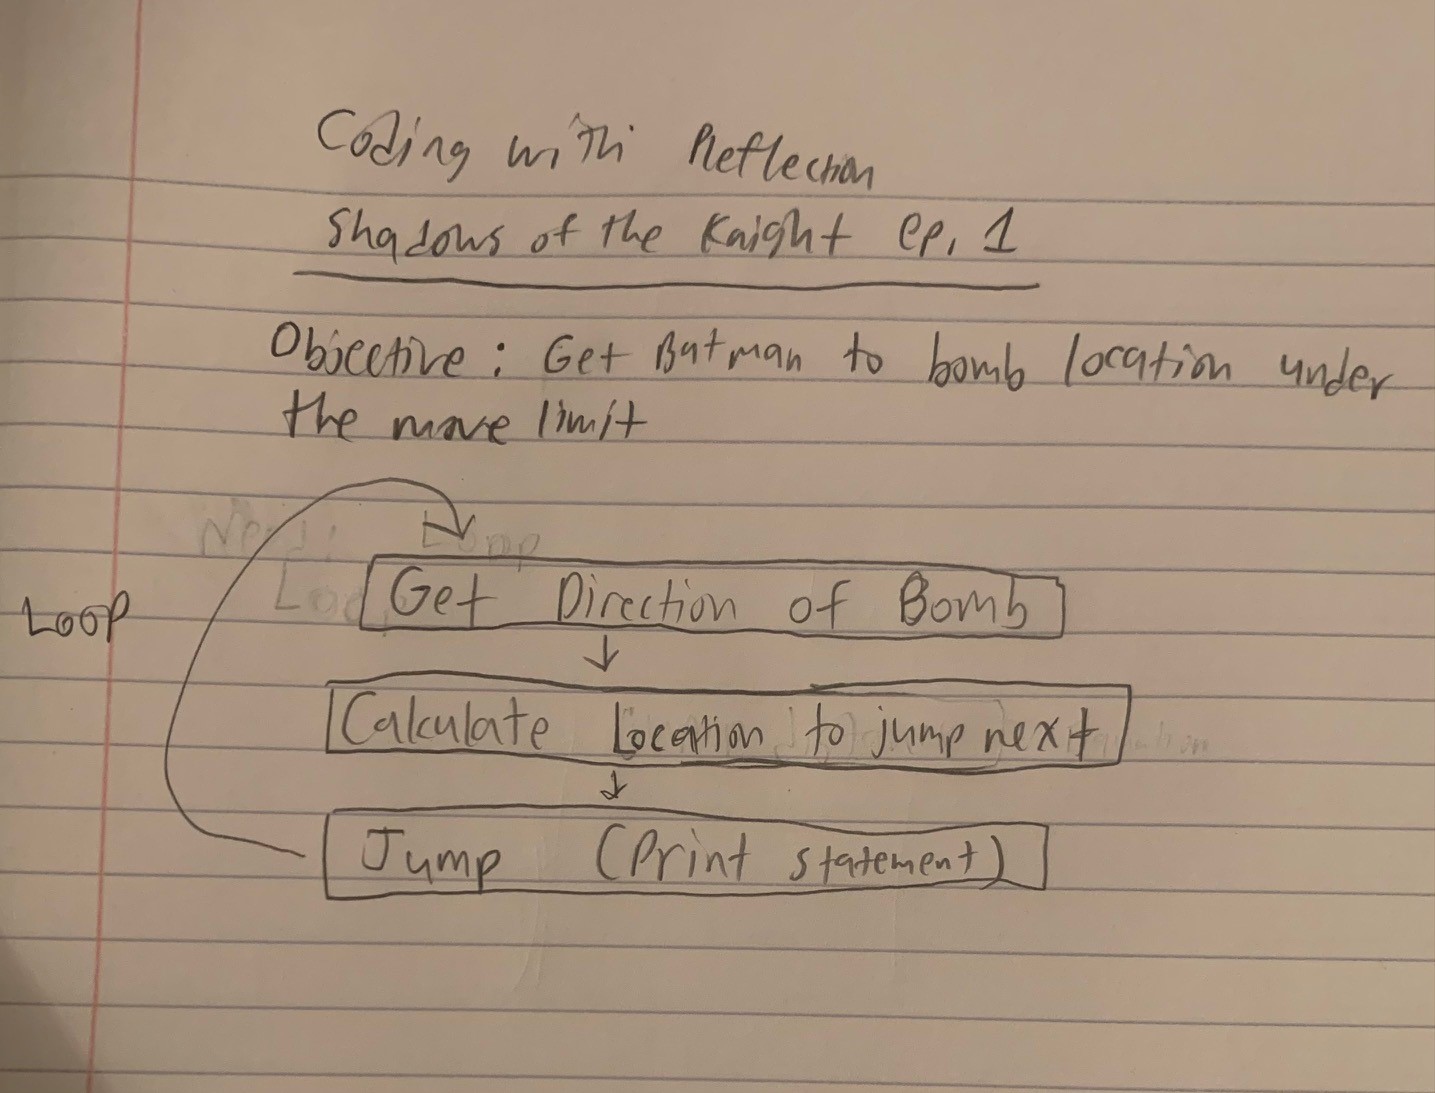 Coding with Reflection
Shadows of the Knight ep. 1
Objective: Get Batman to bomb location under
the move limit
Loop
LOOP
Get Direction of Bomb
Calculate Location to jump next
Jump (Print statement)